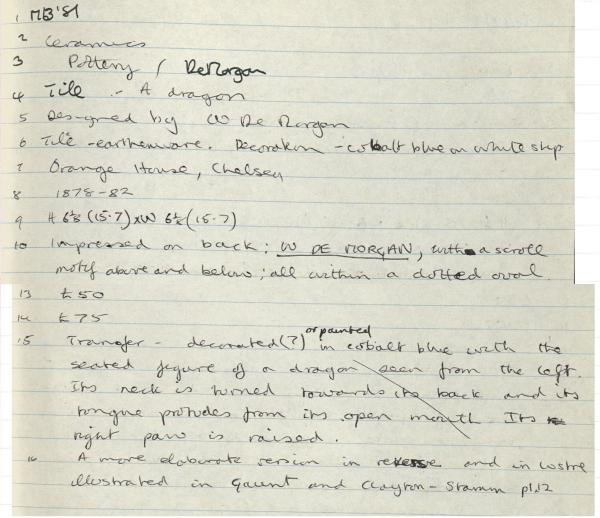 1 MB '81
2 Ceramics
3 Pottery / DeMorgan
4 Tile - A dragon
5 Designed by W De Morgan
6 Tile - earthenware. Decoration - cobalt blue on white slip
7 Orange House, Chelsea
8 1878-82
9 H 6⅛ (15.7) x W 6⅛ (15.7)
10 Impressed on back: W DE MORGAN, with a scroll
motif above and below; all within a dotted oval.
13 £50
14 £75
or painted
15 Transfer - decorated (?) in cobalt blue with the
seated figure of a dragon seen from the left.
Its neck is turned towards its back and its
tongue protudes from its open mouth. Its
right paw is raised.
16 A more elaborate version in reverse and in lustre
illustrated in Gaunt and Clayton-Stamm pl.12